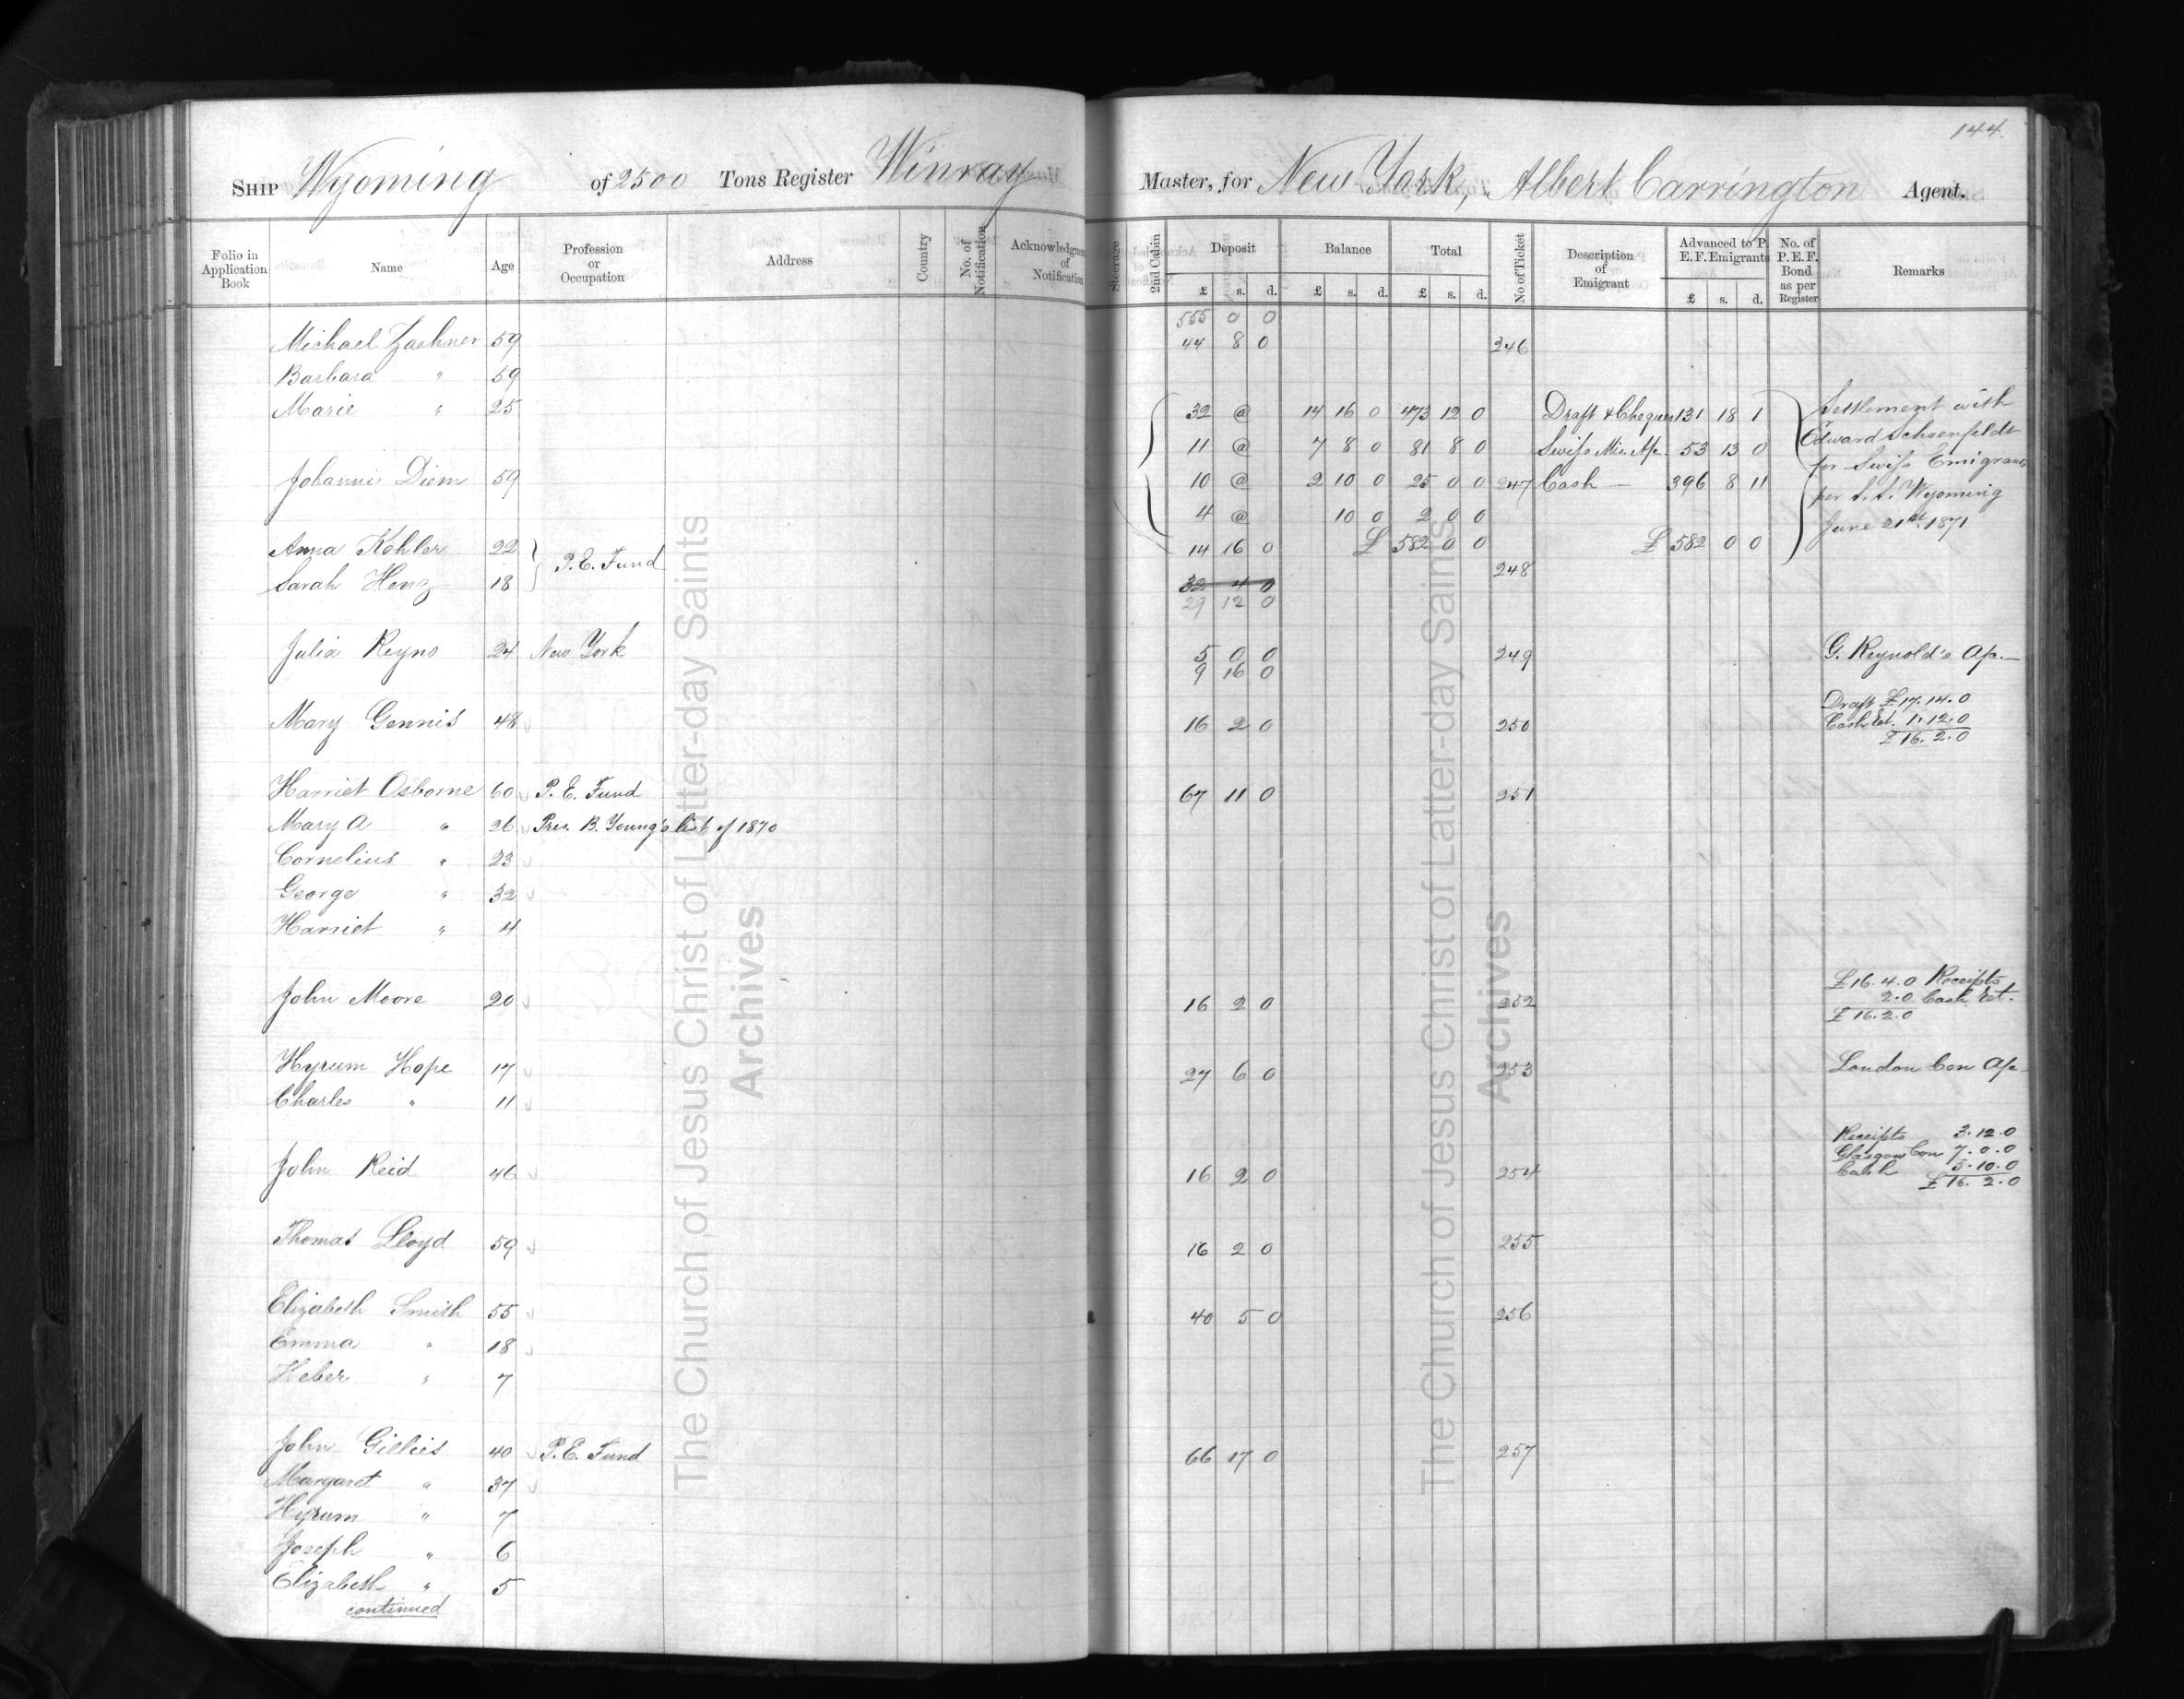 144.
Ship Wyoming of 2500 Tons Register Winray Master, for New York, Albert Carrington Agent.
Folio in Application Book Name Age Profession or Occupation Address Country No. of Notification Acknowledgment of Notification Steerage 2nd Cabin Deposit £ s. d. Balance £ s. d. Total £ s. d. No of Ticket Description of Emigrant Advanced to P. E. F. Emigrants £ s. d. No. of P. E. F. Bond as per Register Remarks
555 0 0
Michael Zaehner 59 44 8 0 246
Barbara " 59
Marie " 25 32 @ 14 16 0 473 12 0 Draft & Cheques 131 18 1 Settlement with
11 @ 7 8 0 81 8 0 Swiss Mis. A/c. 53 13 0 Edward Schoenfeldt
Johannis Diem 59 10 @ 2 10 0 25 0 0 247 Cash — 396 8 11 for Swiss Emigrants
4 @ 10 0 2 0 0 per S.S. Wyoming
June 21st, 1871
Anna Kohler 22 P. E. Fund 14 16 0 £ 582 0 0 £ 582 0 0
248
Sarah Henz 18 32 4 0
29 12 0
Julia Reyno 24 New York 5 0 0 249 G. Reynold's A/c.—
9 16 0
Draft £17.14.0
Mary Gennis 48 16 2 0 250 Cash Ret. 1.12.0
£16.2.0
Harriet Osborne 60 P. E. Fund 67 11 0 251
Mary A " 26 Pres. B. Young's list of 1870
Cornelius " 23
George " 32
Harriet " 4
£16.4.0 Receipts
John Moore 20 16 2 0 252 2.0 Cash Ret.
£16.2.0
Hyrum Hope 17 27 6 0 253 London Con A/c
Charles " 11
Receipts 3.12.0
Glasgow Con 7.0.0
John Reid 46 16 2 0 254 Cash 5.10.0
£16.2.0
Thomas Lloyd 59 16 2 0 255
Elizabeth Smith 55 40 5 0 256
Emma " 18
Heber " 7
John Gillies 40 P. E. Fund 66 17 0 257
Margaret " 37
Hyrum " 7
Joseph " 6
Elizabeth " 5
continued
The Church of Jesus Christ of Latter-day Saints
Archives
The Church of Jesus Christ of Latter-day Saints
Archives